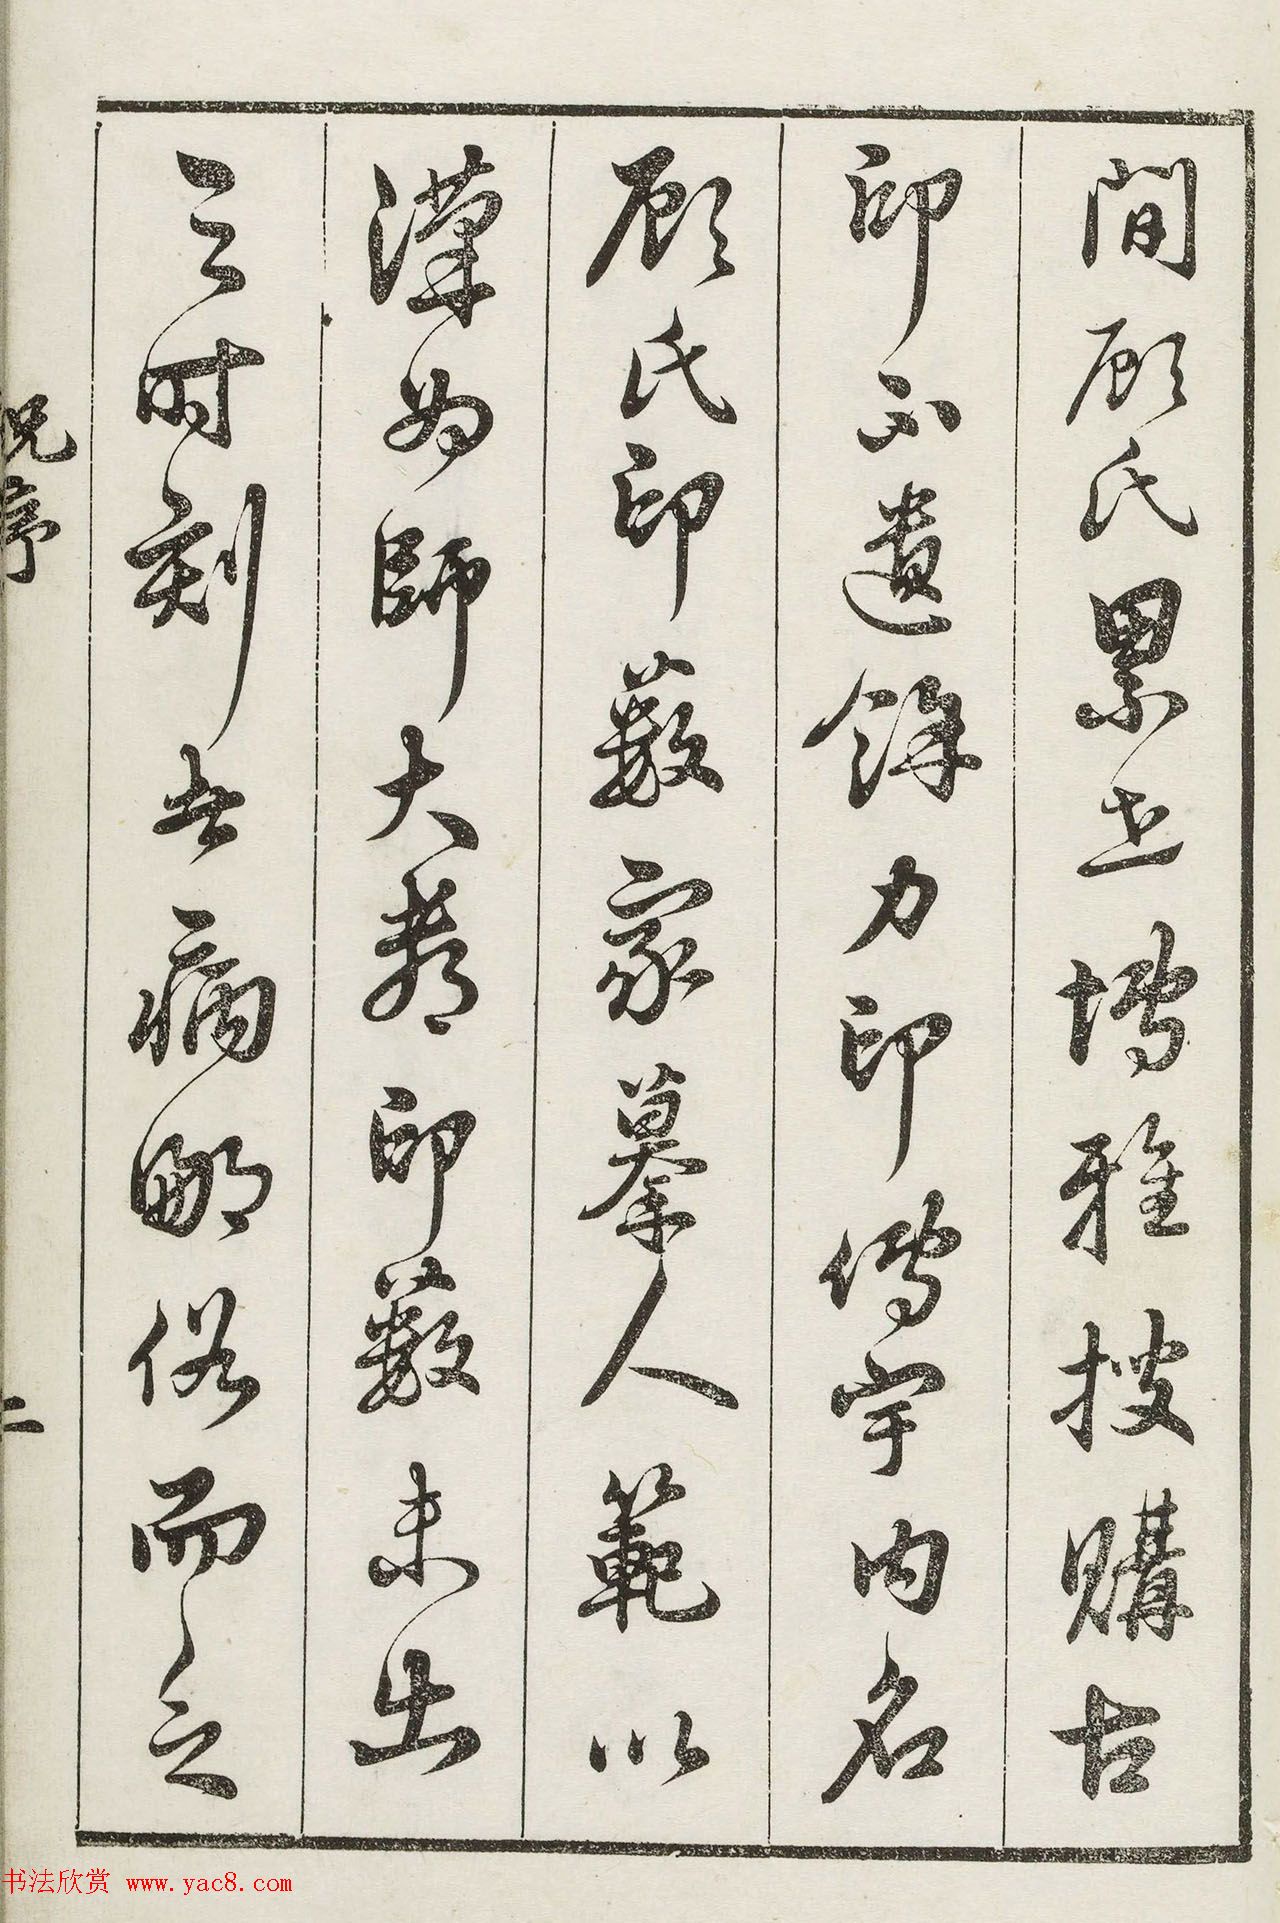 間顧氏累世博雅搜購古
印不遺餘力印傳宇内名
顧氏印藪家摹人範以
漢為師大都印藪未出
之時刻者病鄙俗而之
祝序
二
书法欣赏 www.yac8.com